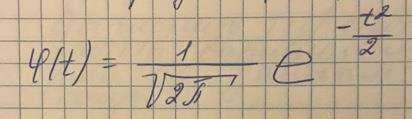 φ(t) = 1/√(2π) e^(-t²/2)